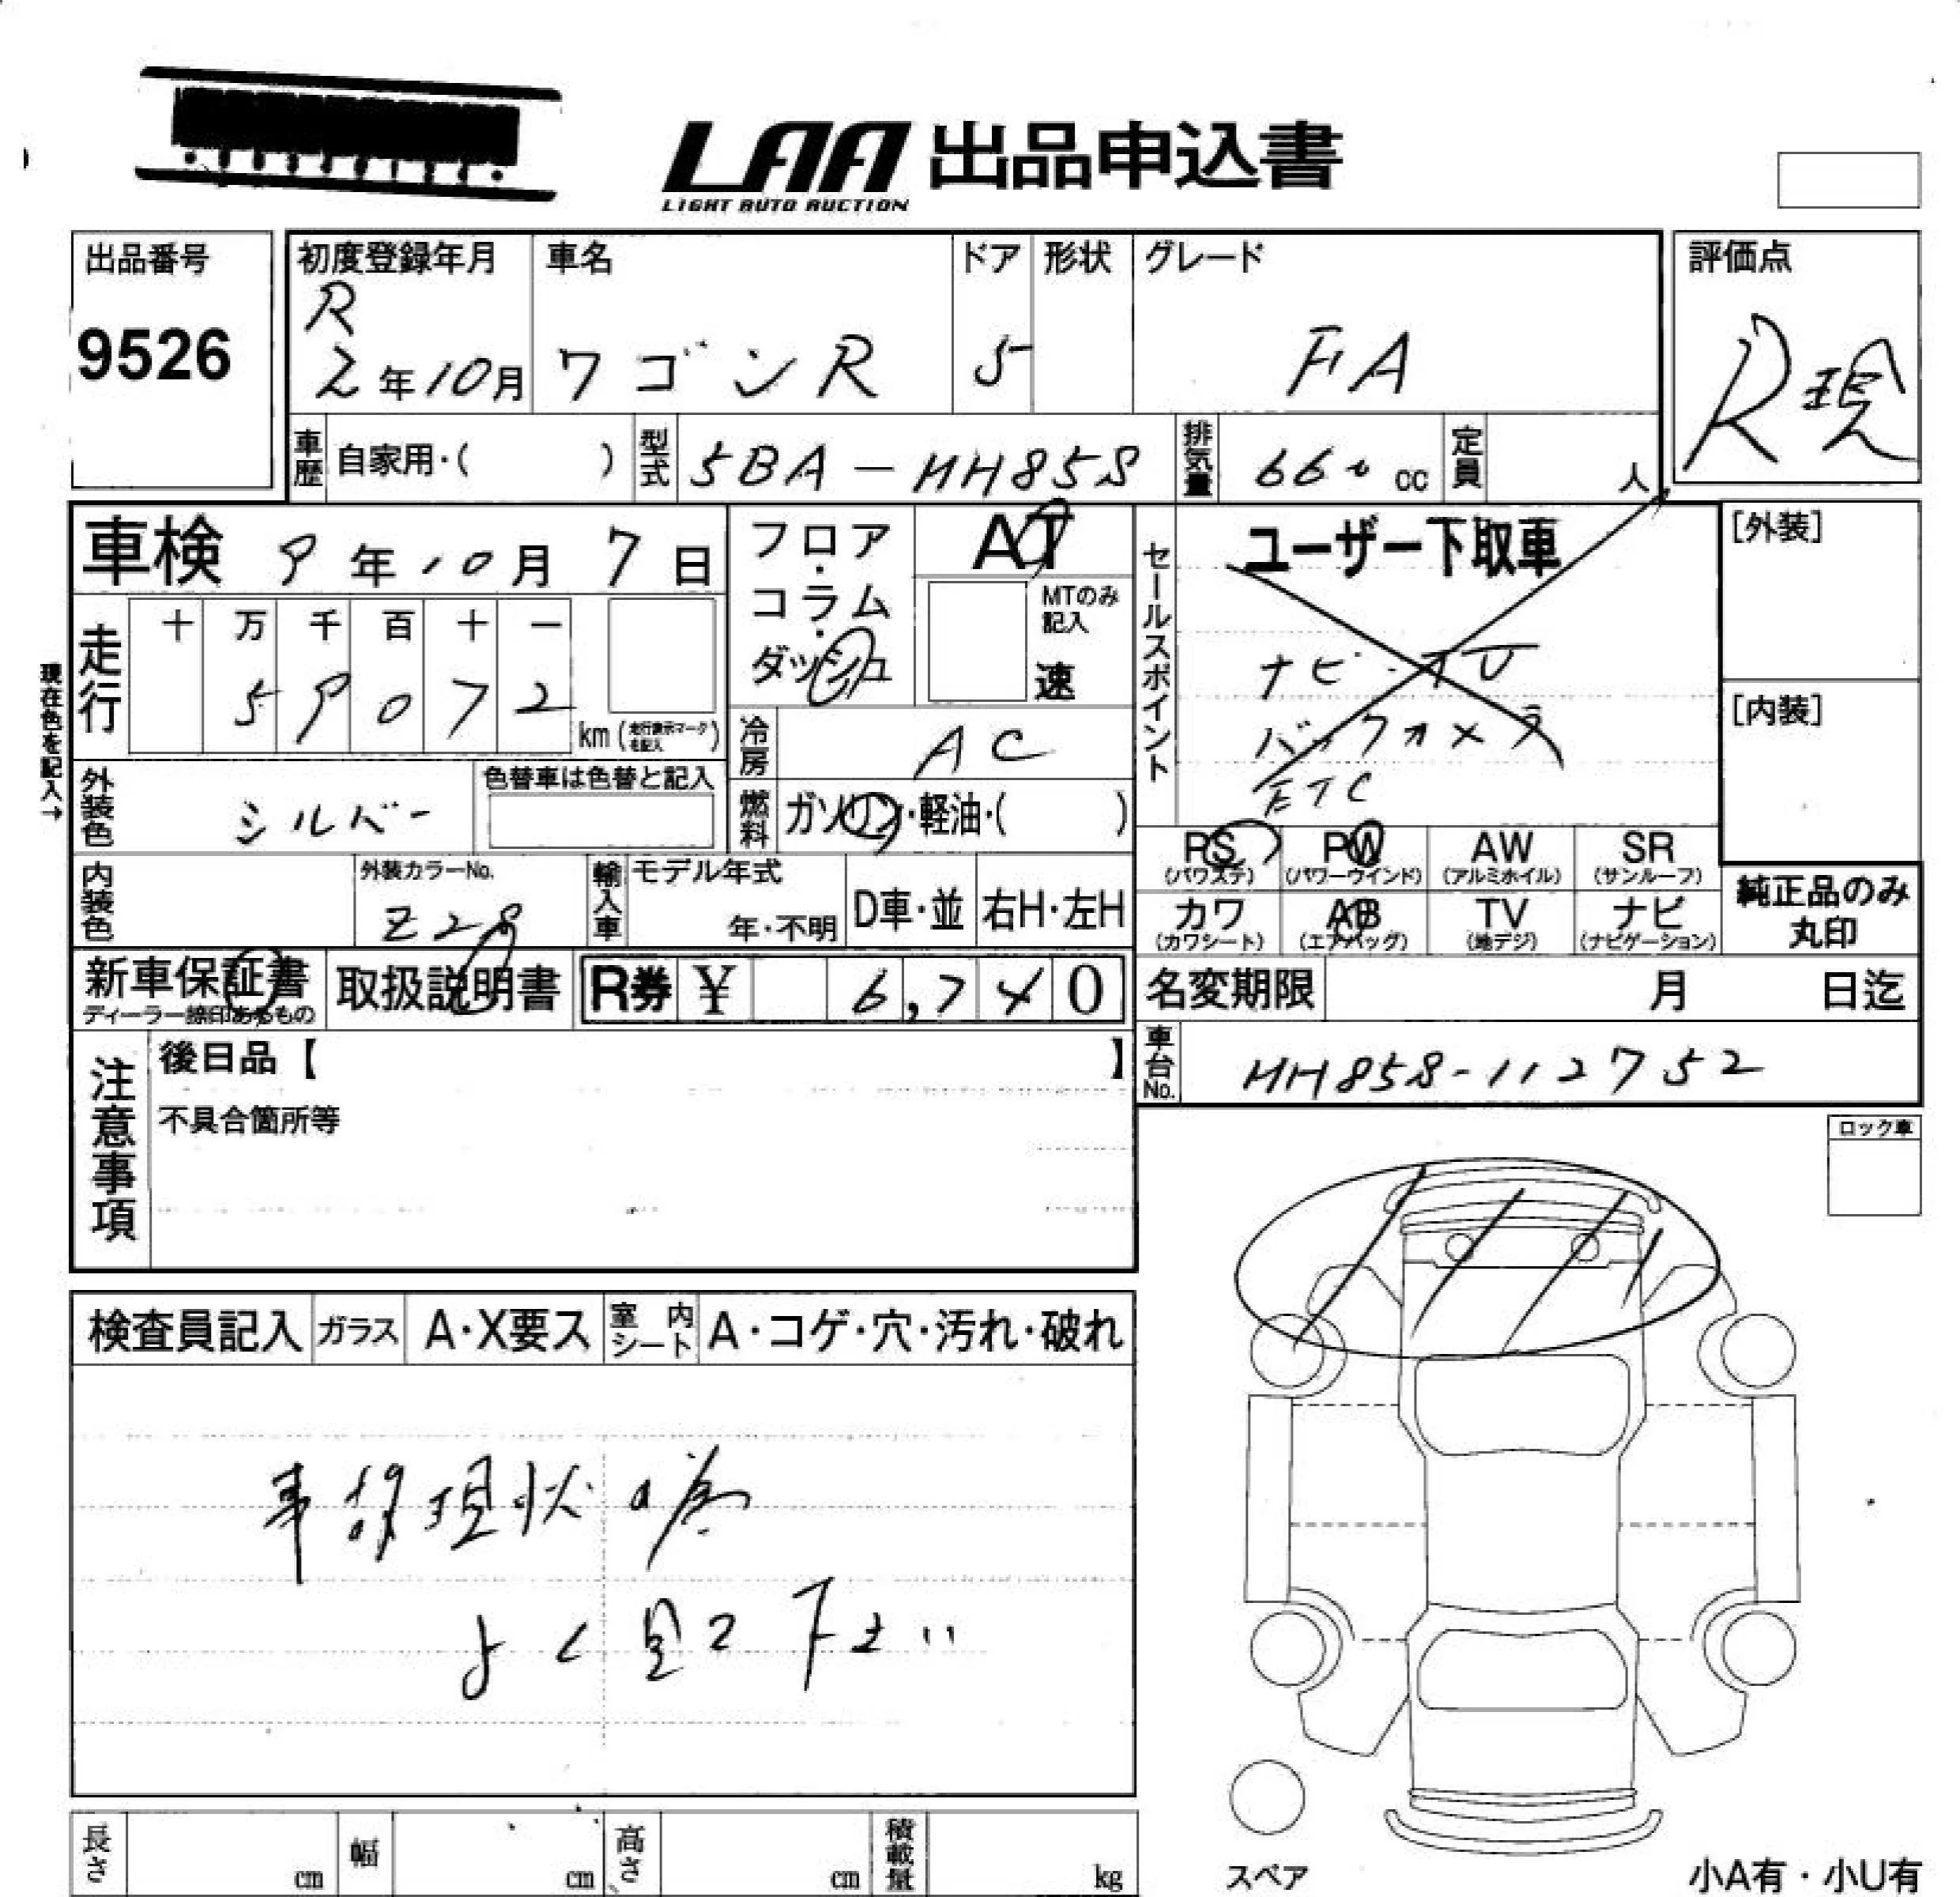 LAA 出品申込書
LIGHT AUTO AUCTION
出品番号
9526
初度登録年月
R
2年10月
車名
ワゴンR
ドア
5
形状
グレード
FA
評価点
R現
車歴 自家用・( )
型式 5BA-HH85S
排気量 660 cc
定員 人
車検 9年10月7日
フロア・コラム・ダッシュ
AT
MTのみ記入
速
セールスポイント
ユーザー下取車
ナビ・TV
バックカメラ
ETC
[外装]
[内装]
現在色を記入→
走行
十 万 千 百 十 一
5 9 0 7 2
km (走行表示マークを記入)
冷房 AC
外装色 シルバー
色替車は色替と記入
燃料 ガソリン・軽油・( )
PS PW AW SR
(パワステ) (パワーウインド) (アルミホイル) (サンルーフ)
カワ AB TV ナビ
(カワシート) (エアバッグ) (地デジ) (ナビゲーション)
純正品のみ
丸印
内装色
外装カラーNo.
Z2S
輸入車
モデル年式
年・不明
D車・並
右H・左H
新車保証書
ディーラー捺印あるもの
取扱説明書
R券 ¥ 6,740
名変期限 月 日迄
注意事項
後日品【 】
不具合箇所等
車台No. HH85S-112752
ロック車
検査員記入 ガラス A・X要ス 室内シート A・コゲ・穴・汚れ・破れ
事故現状の為
よく見て下さい
長さ cm 幅 cm 高さ cm 積載量 kg
スペア
小A有・小U有